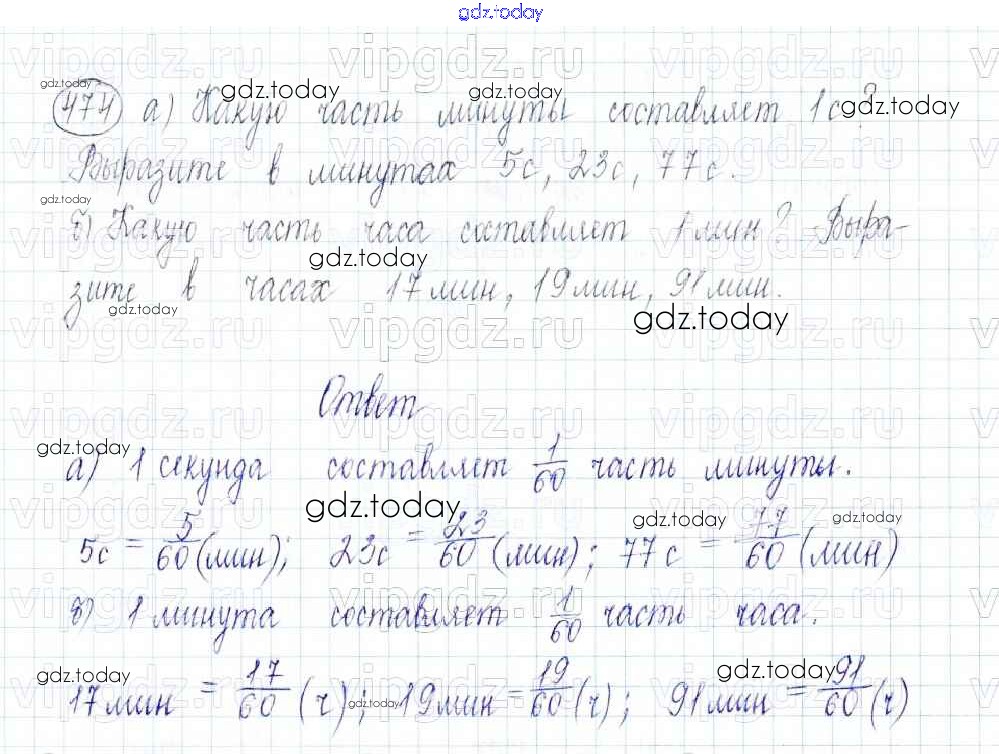 gdz.today
474 а) Какую часть минуты составляет 1 с?
Выразите в минутах 5с, 23с, 77с.
б) Какую часть часа составляет 1 мин? Выра-
зите в часах 17 мин, 19 мин, 91 мин.
Ответ
а) 1 секунда составляет 1/60 часть минуты.
5с = 5/60 (мин); 23с = 23/60 (мин); 77с = 77/60 (мин)
б) 1 минута составляет 1/60 часть часа.
17 мин = 17/60 (ч); 19 мин = 19/60 (ч); 91 мин = 91/60 (ч)